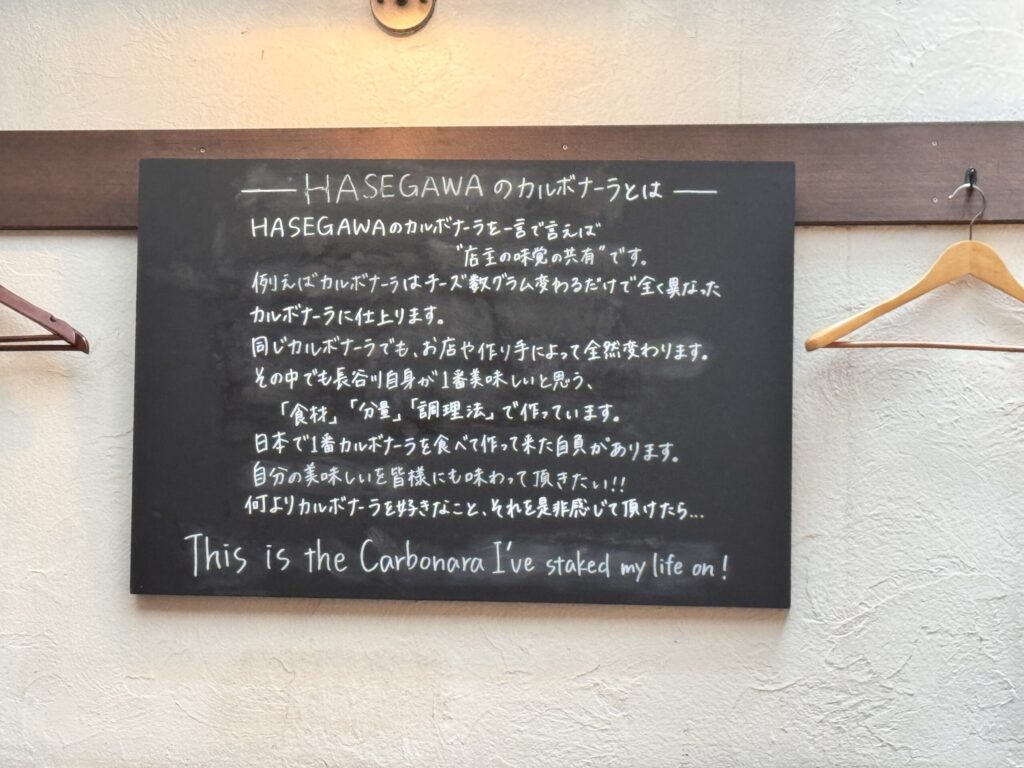 — HASEGAWAのカルボナーラとは —
HASEGAWAのカルボナーラを一言で言えば
"店主の味覚の共有"です。
例えばカルボナーラはチーズ数グラム変わるだけで全く異なった
カルボナーラに仕上ります。
同じカルボナーラでも、お店や作り手によって全然変わります。
その中でも長谷川自身が1番美味しいと思う、
「食材」「分量」「調理法」で作っています。
日本で1番カルボナーラを食べて作って来た自負があります。
自分の美味しいを皆様にも味わって頂きたい!!
何よりカルボナーラを好きなこと、それを是非感じて頂けたら...
This is the Carbonara I've staked my life on!